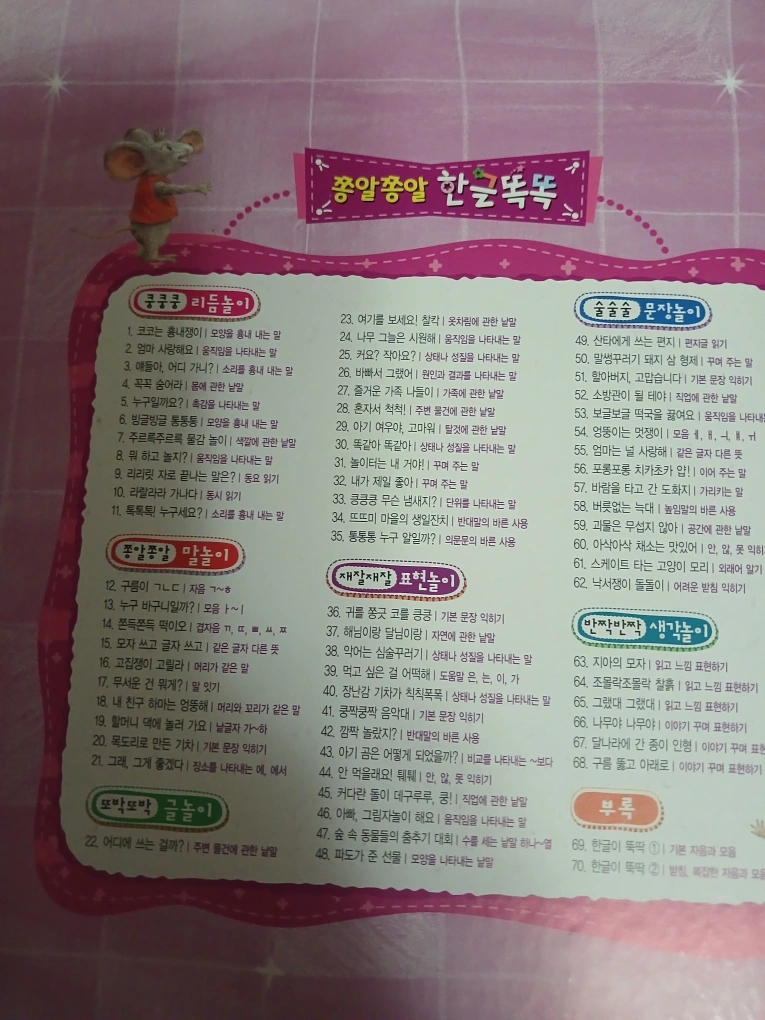 쫑알쫑알 한글똑똑
쿵쿵쿵 리듬놀이
1. 코코는 흉내쟁이 | 모양을 흉내 내는 말
2. 엄마 사랑해요 | 움직임을 나타내는 말
3. 얘들아, 어디 가니? | 소리를 흉내 내는 말
4. 꼭꼭 숨어라 | 몸에 관한 낱말
5. 누구일까요? | 촉감을 나타내는 말
6. 빙글빙글 통통통 | 모양을 흉내 내는 말
7. 주르륵주르륵 물감 놀이 | 색깔에 관한 낱말
8. 뭐 하고 놀지? | 움직임을 나타내는 말
9. 리리릿 자로 끝나는 말은? | 동요 읽기
10. 라랄라라 가나다 | 동시 읽기
11. 톡톡톡! 누구세요? | 소리를 흉내 내는 말
쫑알쫑알 말놀이
12. 구름이 ㄱㄴㄷ | 자음 ㄱ~ㅎ
13. 누구 바구니일까? | 모음 ㅏ~ㅣ
14. 쫀득쫀득 떡이오 | 겹자음 ㄲ, ㄸ, ㅃ, ㅆ, ㅉ
15. 모자 쓰고 글자 쓰고 | 같은 글자 다른 뜻
16. 고집쟁이 고릴라 | 머리가 같은 말
17. 무서운 건 뭐게? | 말 잇기
18. 내 친구 하마는 엉뚱해 | 머리와 꼬리가 같은 말
19. 할머니 댁에 놀러 가요 | 낱글자 가~하
20. 목도리로 만든 기차 | 기본 문장 익히기
21. 그래, 그게 좋겠다 | 장소를 나타내는 에, 에서
또박또박 글놀이
22. 어디에 쓰는 걸까? | 주변 물건에 관한 낱말
23. 여기를 보세요! 찰칵 | 옷차림에 관한 낱말
24. 나무 그늘은 시원해 | 움직임을 나타내는 말
25. 커요? 작아요? | 상태나 성질을 나타내는 말
26. 바빠서 그랬어 | 원인과 결과를 나타내는 말
27. 즐거운 가족 나들이 | 가족에 관한 낱말
28. 혼자서 척척! | 주변 물건에 관한 낱말
29. 아기 여우야, 고마워 | 탈것에 관한 낱말
30. 똑같아 똑같아 | 상태나 성질을 나타내는 말
31. 놀이터는 내 거야! | 꾸며 주는 말
32. 내가 제일 좋아 | 꾸며 주는 말
33. 킁킁킁 무슨 냄새지? | 단위를 나타내는 말
34. 뜨뜨미 마을의 생일잔치 | 반대말의 바른 사용
35. 통통통 누구 알일까? | 의문문의 바른 사용
재잘재잘 표현놀이
36. 귀를 쫑긋 코를 킁킁 | 기본 문장 익히기
37. 해님이랑 달님이랑 | 자연에 관한 낱말
38. 악어는 심술꾸러기 | 상태나 성질을 나타내는 말
39. 먹고 싶은 걸 어떡해 | 도움말 은, 는, 이, 가
40. 장난감 기차가 칙칙폭폭 | 상태나 성질을 나타내는 말
41. 쿵짝쿵짝 음악대 | 기본 문장 익히기
42. 깜짝 놀랐지? | 반대말의 바른 사용
43. 아기 곰은 어떻게 되었을까? | 비교를 나타내는 ~보다
44. 안 먹을래요! 퉤퉤 | 안, 않, 못 익히기
45. 커다란 돌이 데구루루, 쿵! | 직업에 관한 낱말
46. 아빠, 그림자놀이 해요 | 움직임을 나타내는 말
47. 숲 속 동물들의 춤추기 대회 | 수를 세는 낱말 하나~열
48. 파도가 준 선물 | 모양을 나타내는 낱말
술술술 문장놀이
49. 산타에게 쓰는 편지 | 편지글 읽기
50. 말썽꾸러기 돼지 삼 형제 | 꾸며 주는 말
51. 할아버지, 고맙습니다 | 기본 문장 익히기
52. 소방관이 될 테야 | 직업에 관한 낱말
53. 보글보글 떡국을 끓여요 | 움직임을 나타내
54. 엉뚱이는 멋쟁이 | 모음 ㅔ, ㅐ, ㅢ, ㅒ, ㅟ
55. 엄마는 널 사랑해 | 같은 글자 다른 뜻
56. 포롱포롱 치카초카 얍! | 이어 주는 말
57. 바람을 타고 간 도화지 | 가리키는 말
58. 버릇없는 늑대 | 높임말의 바른 사용
59. 괴물은 무섭지 않아 | 공간에 관한 낱말
60. 아삭아삭 채소는 맛있어 | 안, 않, 못 익히
61. 스케이트 타는 고양이 모리 | 외래어 알기
62. 낙서쟁이 돌돌이 | 어려운 받침 익히기
반짝반짝 생각놀이
63. 지아의 모자 | 읽고 느낌 표현하기
64. 조몰락조몰락 찰흙 | 읽고 느낌 표현하기
65. 그랬대 그랬대 | 읽고 느낌 표현하기
66. 나무야 나무야 | 이야기 꾸며 표현하기
67. 달나라에 간 종이 인형 | 이야기 꾸며 표현
68. 구름 뚫고 아래로 | 이야기 꾸며 표현하기
부록
69. 한글이 뚝딱 ① | 기본 자음과 모음
70. 한글이 뚝딱 ② | 받침, 복잡한 자음과 모음